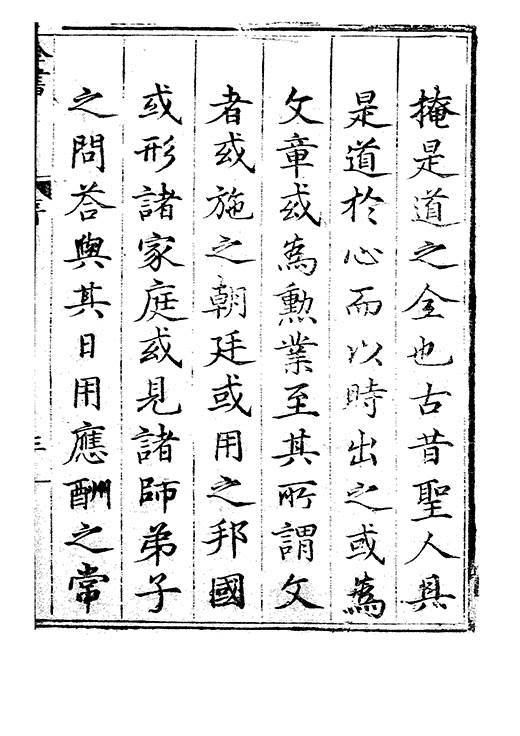 掩是道之全也古昔聖人具
是道於心而以時出之或為
文章或為勲業至其所謂文
者或施之朝廷或用之邦國
或形諸家庭或見諸師弟子
之問答與其日用應酬之常